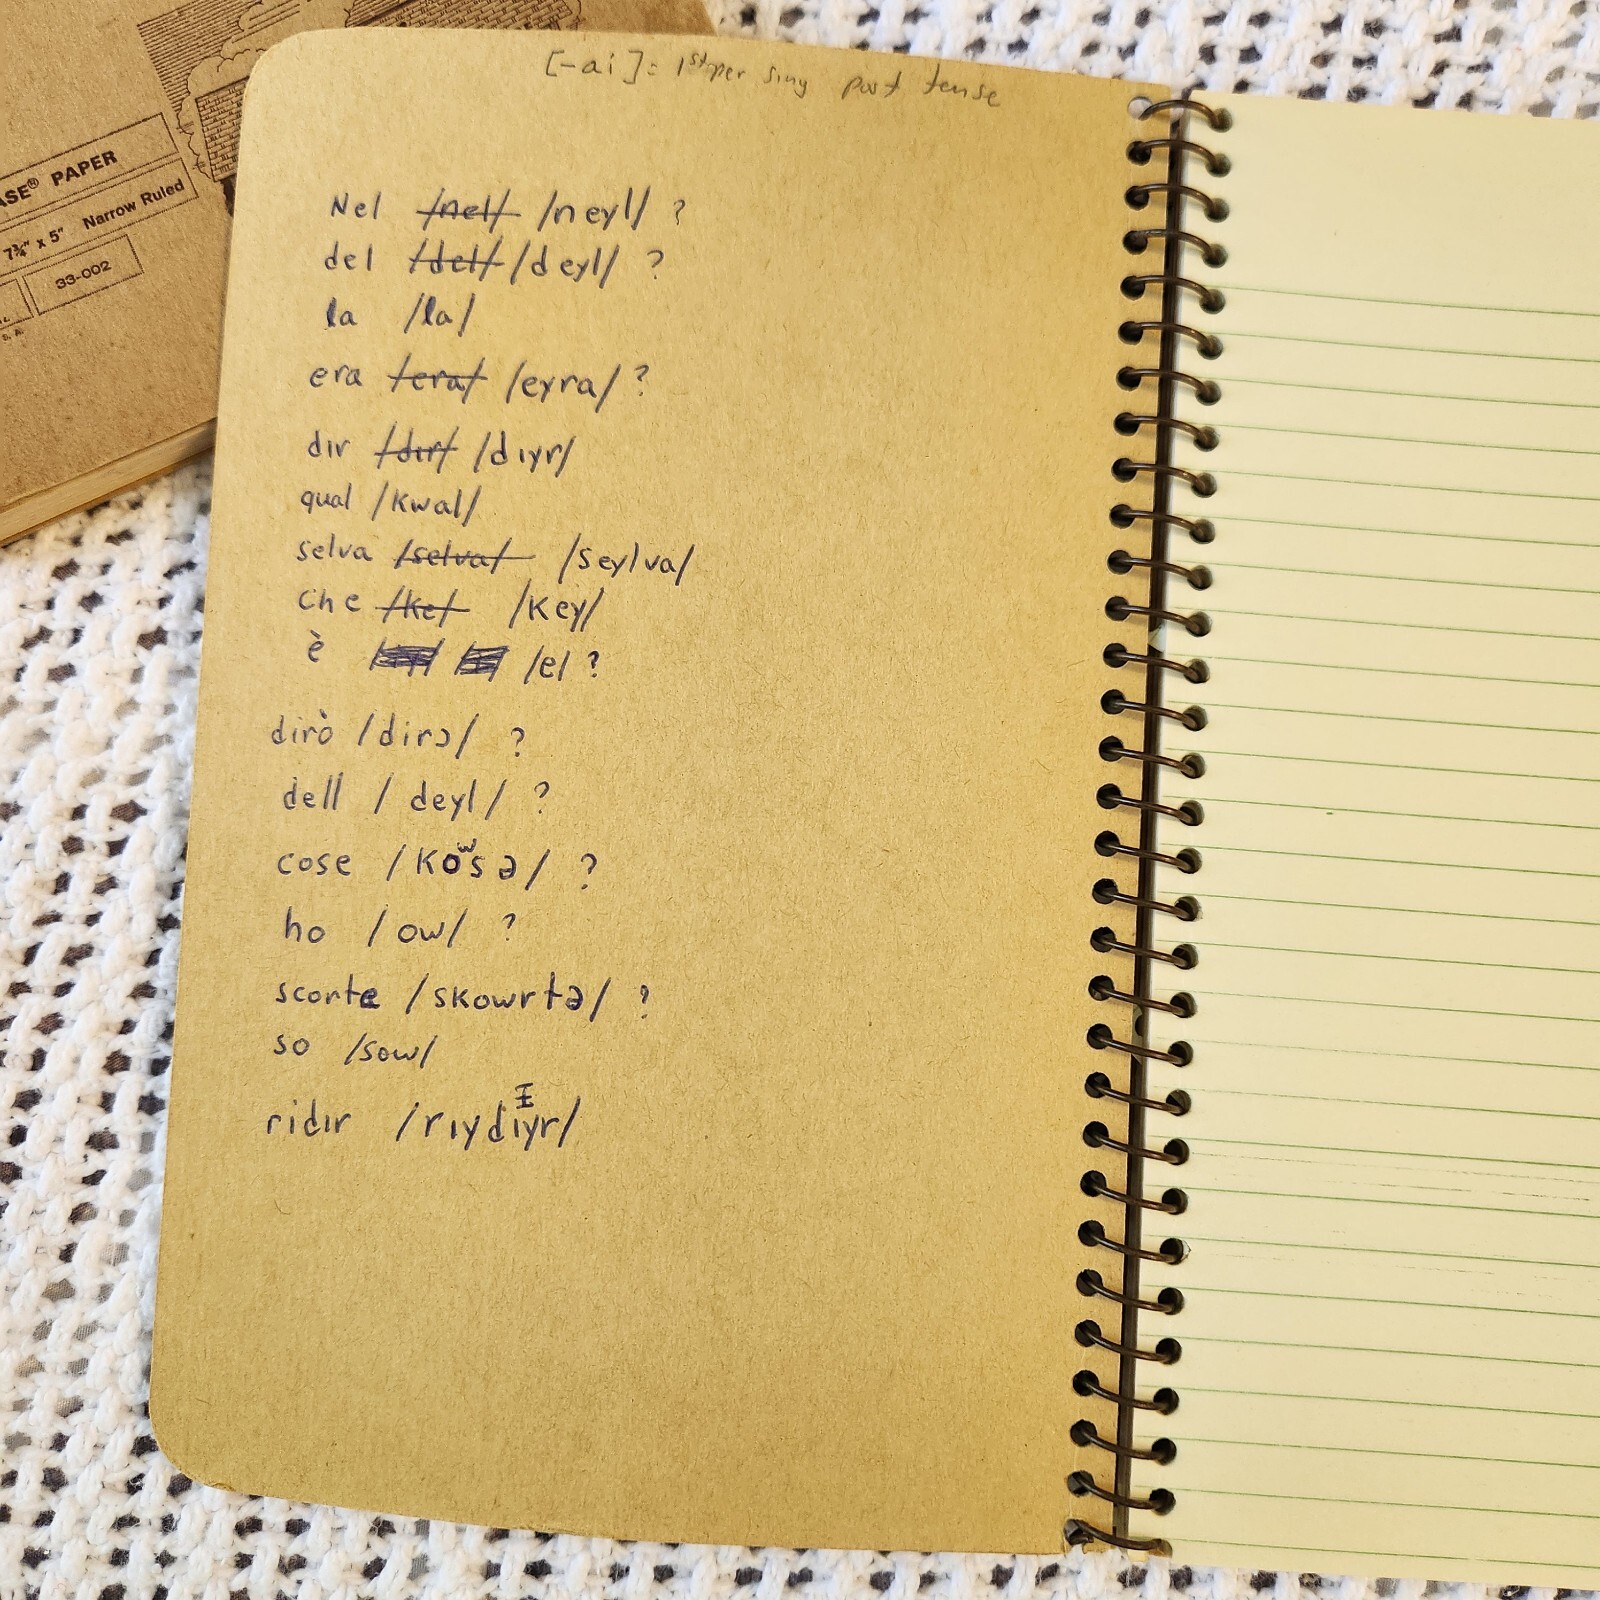 ASE® PAPER
7¾" x 5" Narrow Ruled
33-002
S. A.
[-ai] = 1st per sing past tense
Nel /nel/ /neyl/ ?
del /del/ /deyl/ ?
la /la/
era /era/ /eyra/ ?
dır /dır/ /dıyr/
qual /kwal/
selva /selva/ /seylva/
che /ke/ /key/
è /e/ ?
dirò /dirɔ/ ?
dell /deyl/ ?
cose /kowsə/ ?
ho /ow/ ?
scorte /skowrtə/ ?
so /sow/
ridır /rıydıyr/